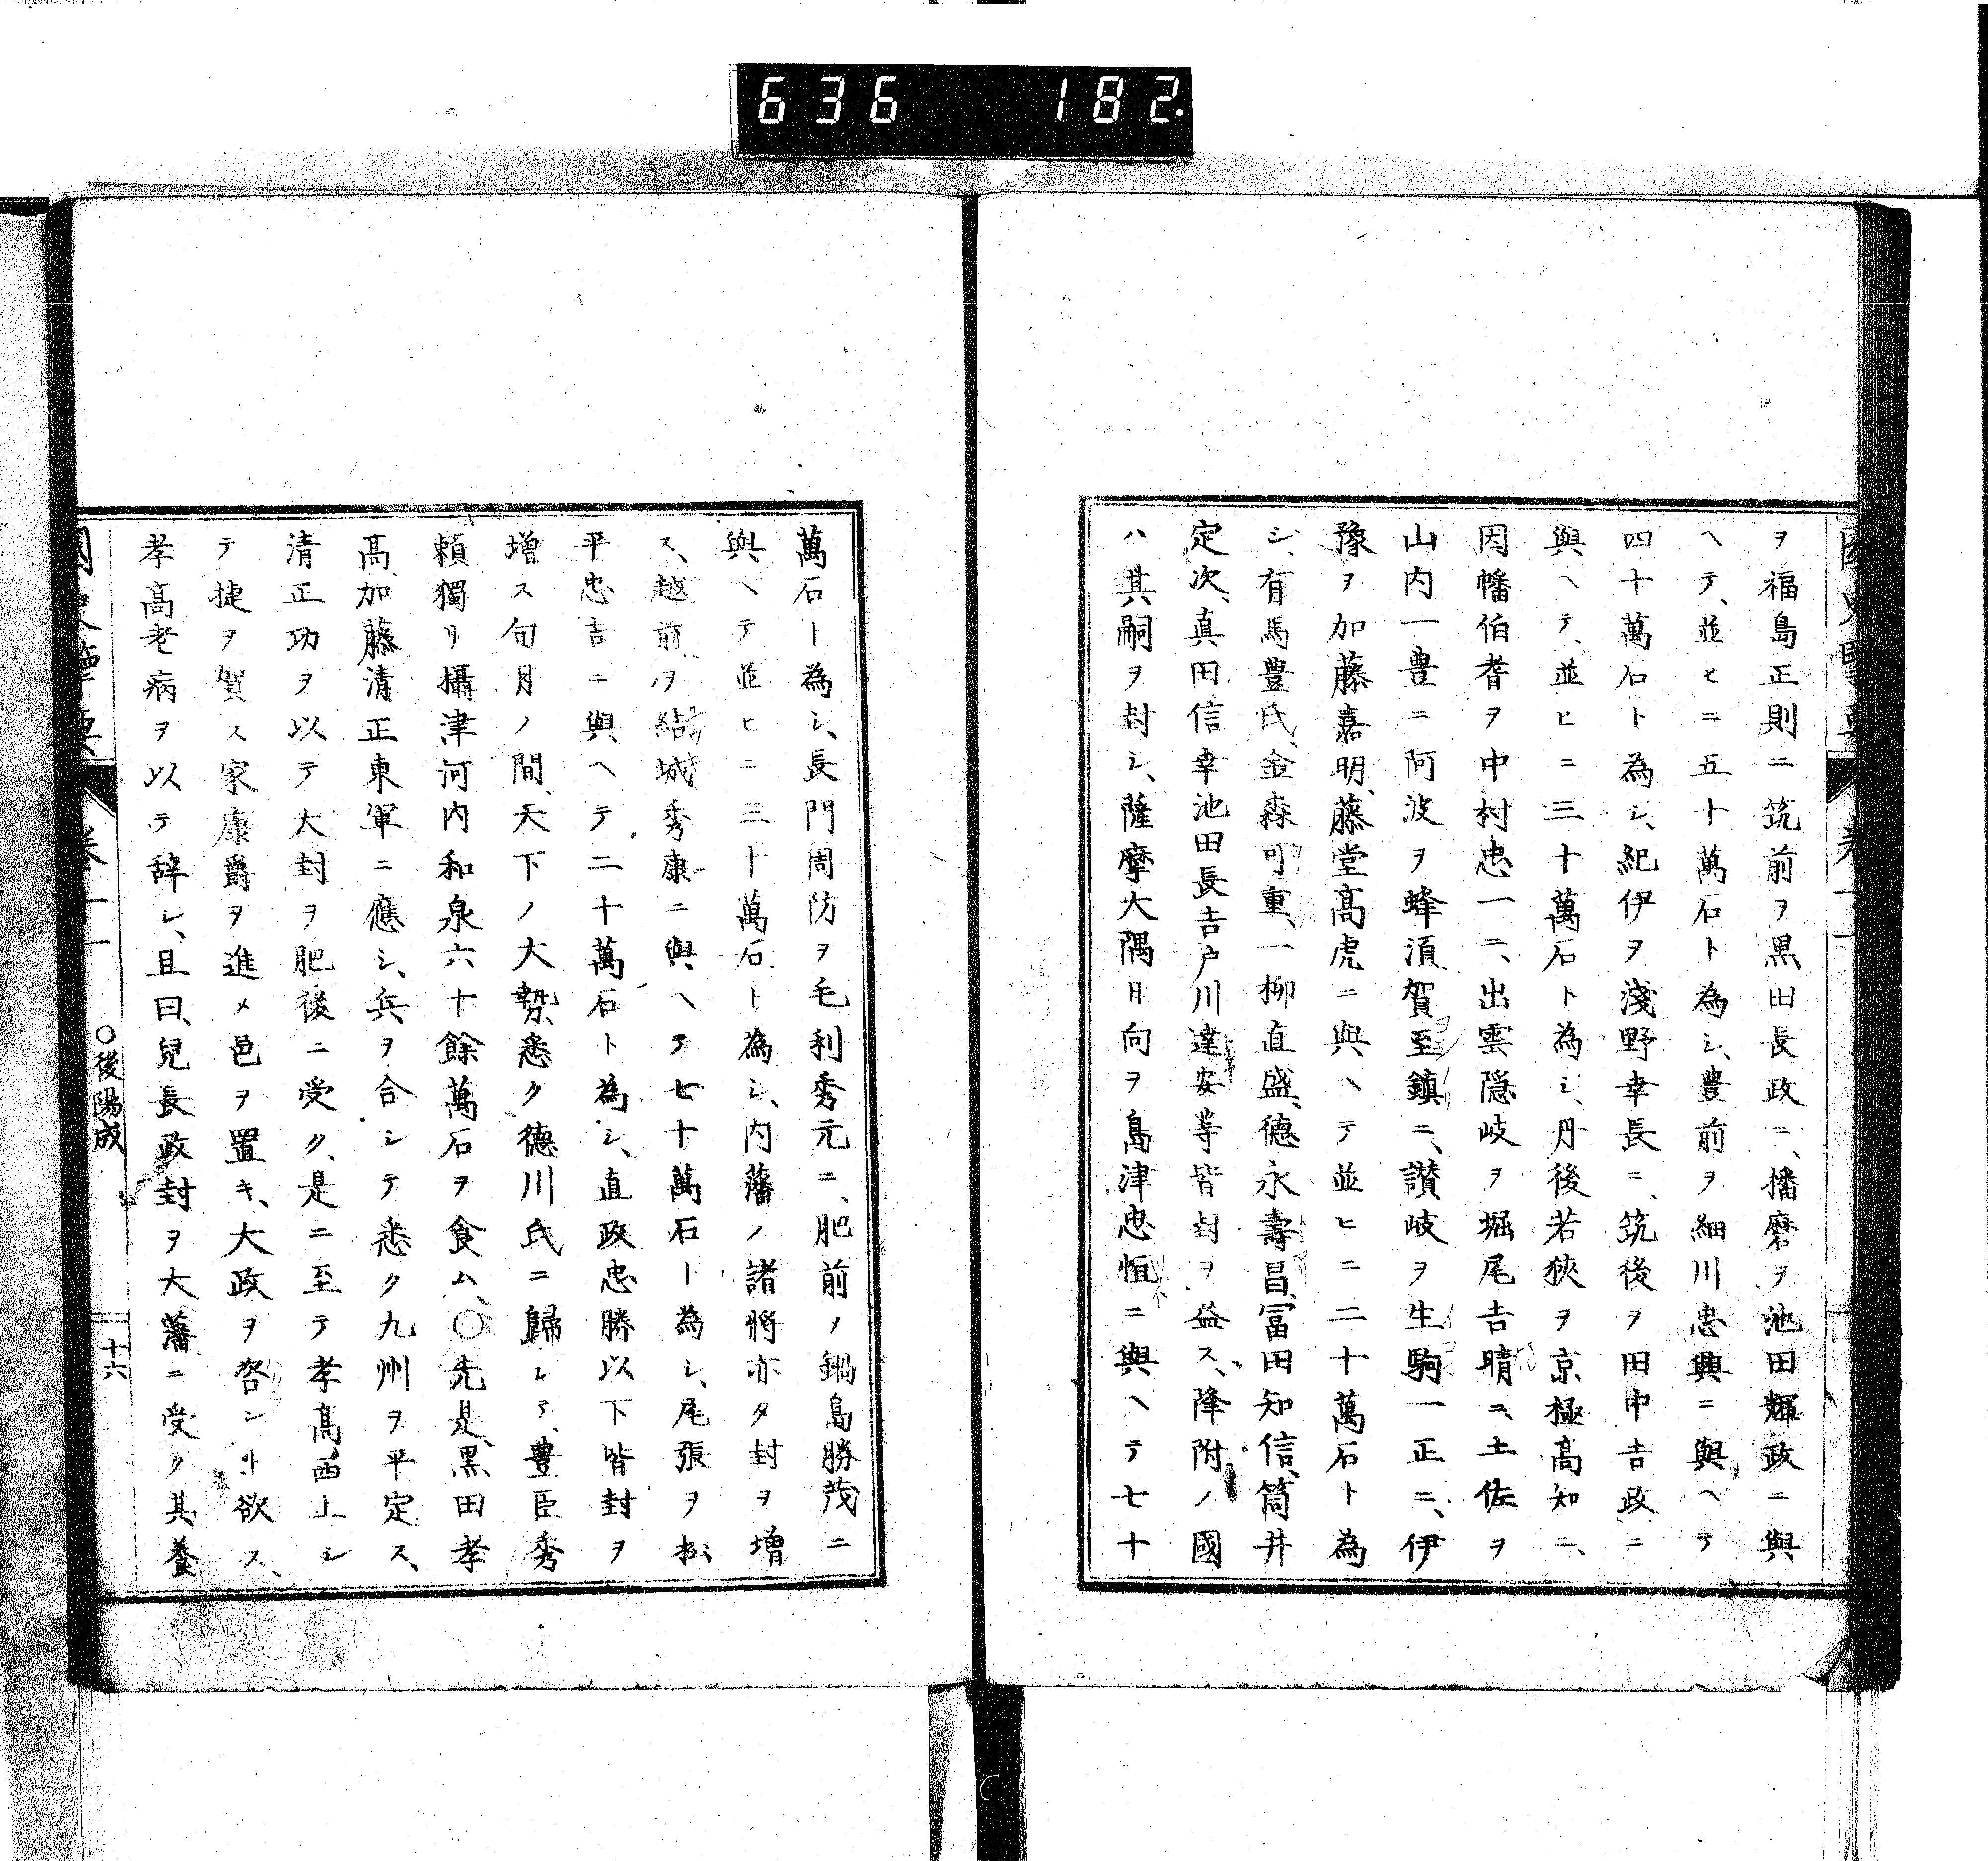 636 182
ヲ福島正則ニ筑前ヲ黒田長政ニ、播磨ヲ池田輝政ニ與
ヘテ、並ヒニ五十萬石ト為シ、豊前ヲ細川忠興ニ與ヘテ
四十萬石ト為シ、紀伊ヲ淺野幸長ニ、筑後ヲ田中吉政ニ
與ヘテ、並ヒニ三十萬石ト為シ、丹後若狹ヲ京極高知ニ、
因幡伯耆ヲ中村忠一ニ、出雲隠岐ヲ堀尾吉晴ニ、土佐ヲ
山内一豊ニ阿波ヲ蜂須賀至鎮ニ、讃岐ヲ生駒一正ニ、伊
豫ヲ加藤嘉明、藤堂高虎ニ與ヘテ並ヒニ二十萬石ト為
シ、有馬豊氏、金森可重、一柳直盛、德永壽昌、冨田知信、筒井
定次、真田信幸池田長吉戸川達安等皆封ヲ益ス、降附ノ國
ハ其嗣ヲ封シ、薩摩大隅日向ヲ島津忠恒ニ與ヘテ七十
萬石ト為シ、長門周防ヲ毛利秀元ニ、肥前ノ鍋島勝茂ニ
與ヘテ並ヒニ三十萬石ト為シ、内藩ノ諸将亦タ封ヲ增
ス、越前ヲ結城秀康ニ與ヘテ七十萬石ト為シ、尾張ヲ松
平忠吉ニ與ヘテ二十萬石ト為シ、直政忠勝以下皆封ヲ
增ス旬月ノ間、天下ノ大勢、悉ク德川氏ニ歸シテ、豊臣秀
頼獨リ攝津河内和泉六十餘萬石ヲ食ム、○先是、黒田孝
高、加藤清正東軍ニ應シ、兵ヲ合シテ悉ク九州ヲ平定ス、
清正功ヲ以テ大封ヲ肥後ニ受ク、是ニ至テ孝高西上シ
テ捷ヲ賀ス家康爵ヲ進メ邑ヲ置キ、大政ヲ咨ンヿヲ欲ス、
孝高老病ヲ以テ辞シ、且曰、兒長政封ヲ大藩ニ受ク其養
巻十一 ○後陽成 十六